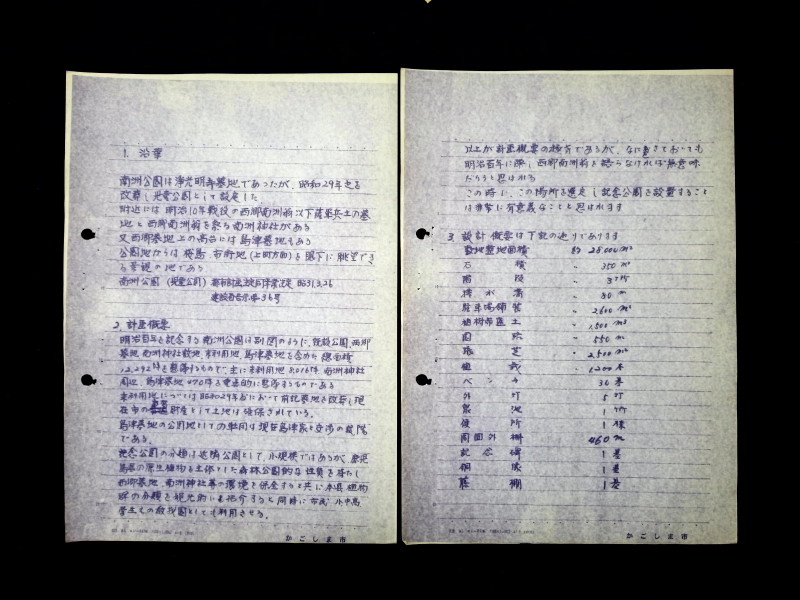 1. 沿革
南洲公園は浄光明寺墓地であったが、昭和29年之を
改葬し児童公園として設定した
附近には明治10年戦役の西郷南洲翁以下薩軍兵士の墓
地と西郷南洲翁を祭る南洲神社がある
又西郷墓地上の高台には島津墓地もある
公園地からは桜島、市街地(上町方面)を眼下に眺望でき
る景観の地である
南洲公園(児童公園) 都市計画決定 昭31.3.26
建設省告示第36号
2. 計画概要
明治百年を記念する南洲公園は別図のように、既設公園、西郷
墓地、南洲神社敷地、未利用地、島津墓地を含めた総面積
を整備するもので、主に未利用地 南洲神社
周辺、島津墓地 を重点的に整備するものである
未利用地については昭和29年 において前記墓地を改葬し現
在市の 財産として土地は確保されている。
島津墓地の公園地としての転用は現在島津家と交渉の段階
である。
記念公園の分類は近隣公園として、小規模ではあるが、鹿児
島県の原生植物を主体とした森林公園的な性質を持たし
西郷墓地、南洲神社等の環境を保全すると共に本県植物
の分類を観光的にも紹介すると同時に市民、小中高
学生の教材園としても利用させる。
かごしま市
以上が計画概要の であるが、なにをさておいても
明治百年に際し西郷南洲翁を語らなければ無意味
だろうと思はれる
この時に、この場所を選定し記念公園を設置すること
は非常に有意義なことと思はれます
3. 設計概要は下記の通りであります
敷地整地面積 約 28,000㎡
石積 〃 350㎡
階段 〃 3ヶ所
排水溝 〃 80m
駐車場舗装 〃 2600㎡
植樹帯盛土 〃 1,500㎡
園路 〃 550m
張芝 〃 2,500㎡
植栽 1,200本
ベンチ 30基
外灯 5灯
泉池 1ヶ所
便所 1棟
周囲外柵 460m
記念碑 1基
銅像 1基
藤棚 1基
かごしま市